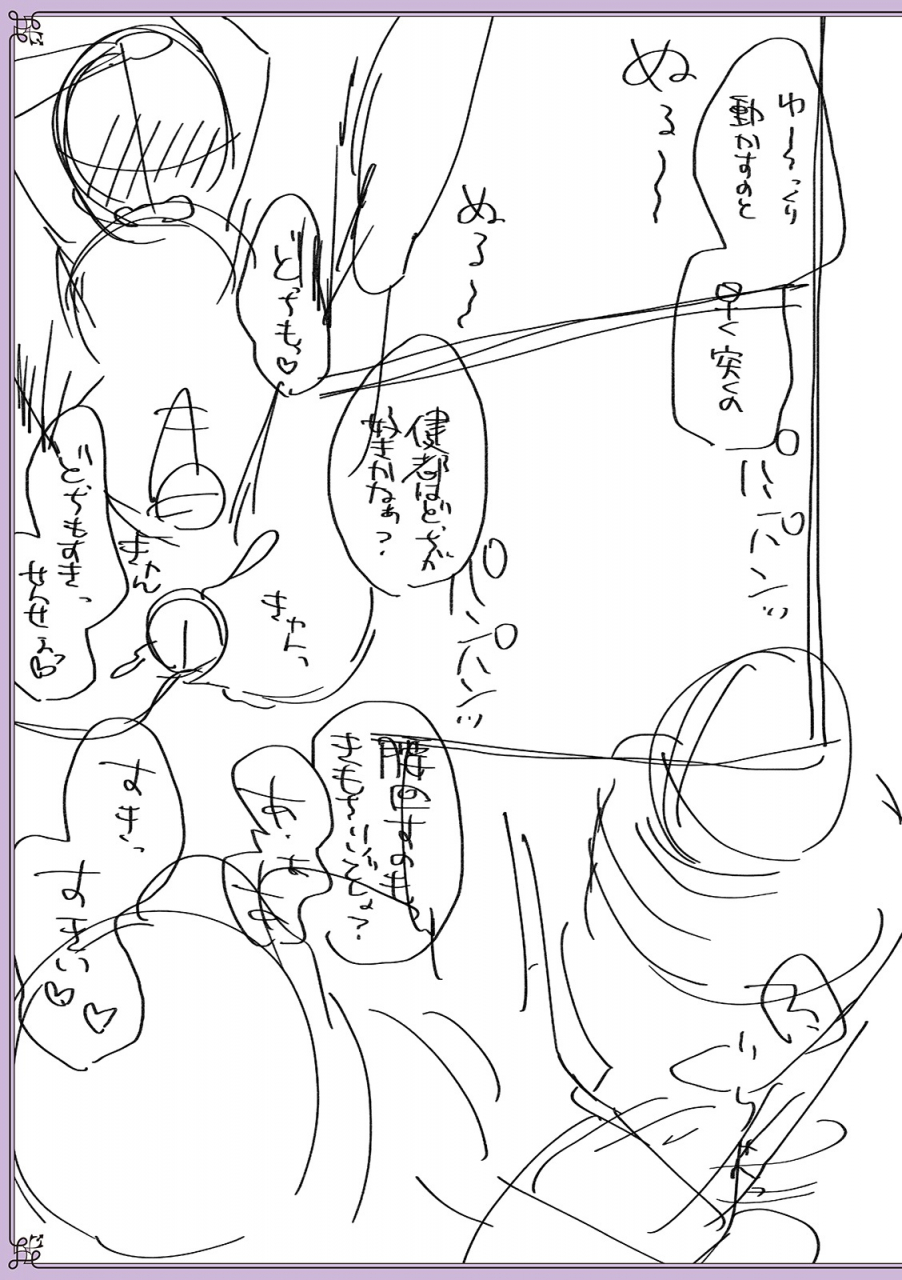 ゆ〜〜っくり
動かすのと
早く突くの
ぬる〜
ぬる〜
パンパンッ
パンパンッ
健都はどっちが
好きかなぁ?
どっちもっ♡
きゃんっ
きゃん
どっちもすきっ
せんせぇっ♡
腰回すのも
きもちいいでしょ?
あ・ああ
すきっ
すきぃ♡♡